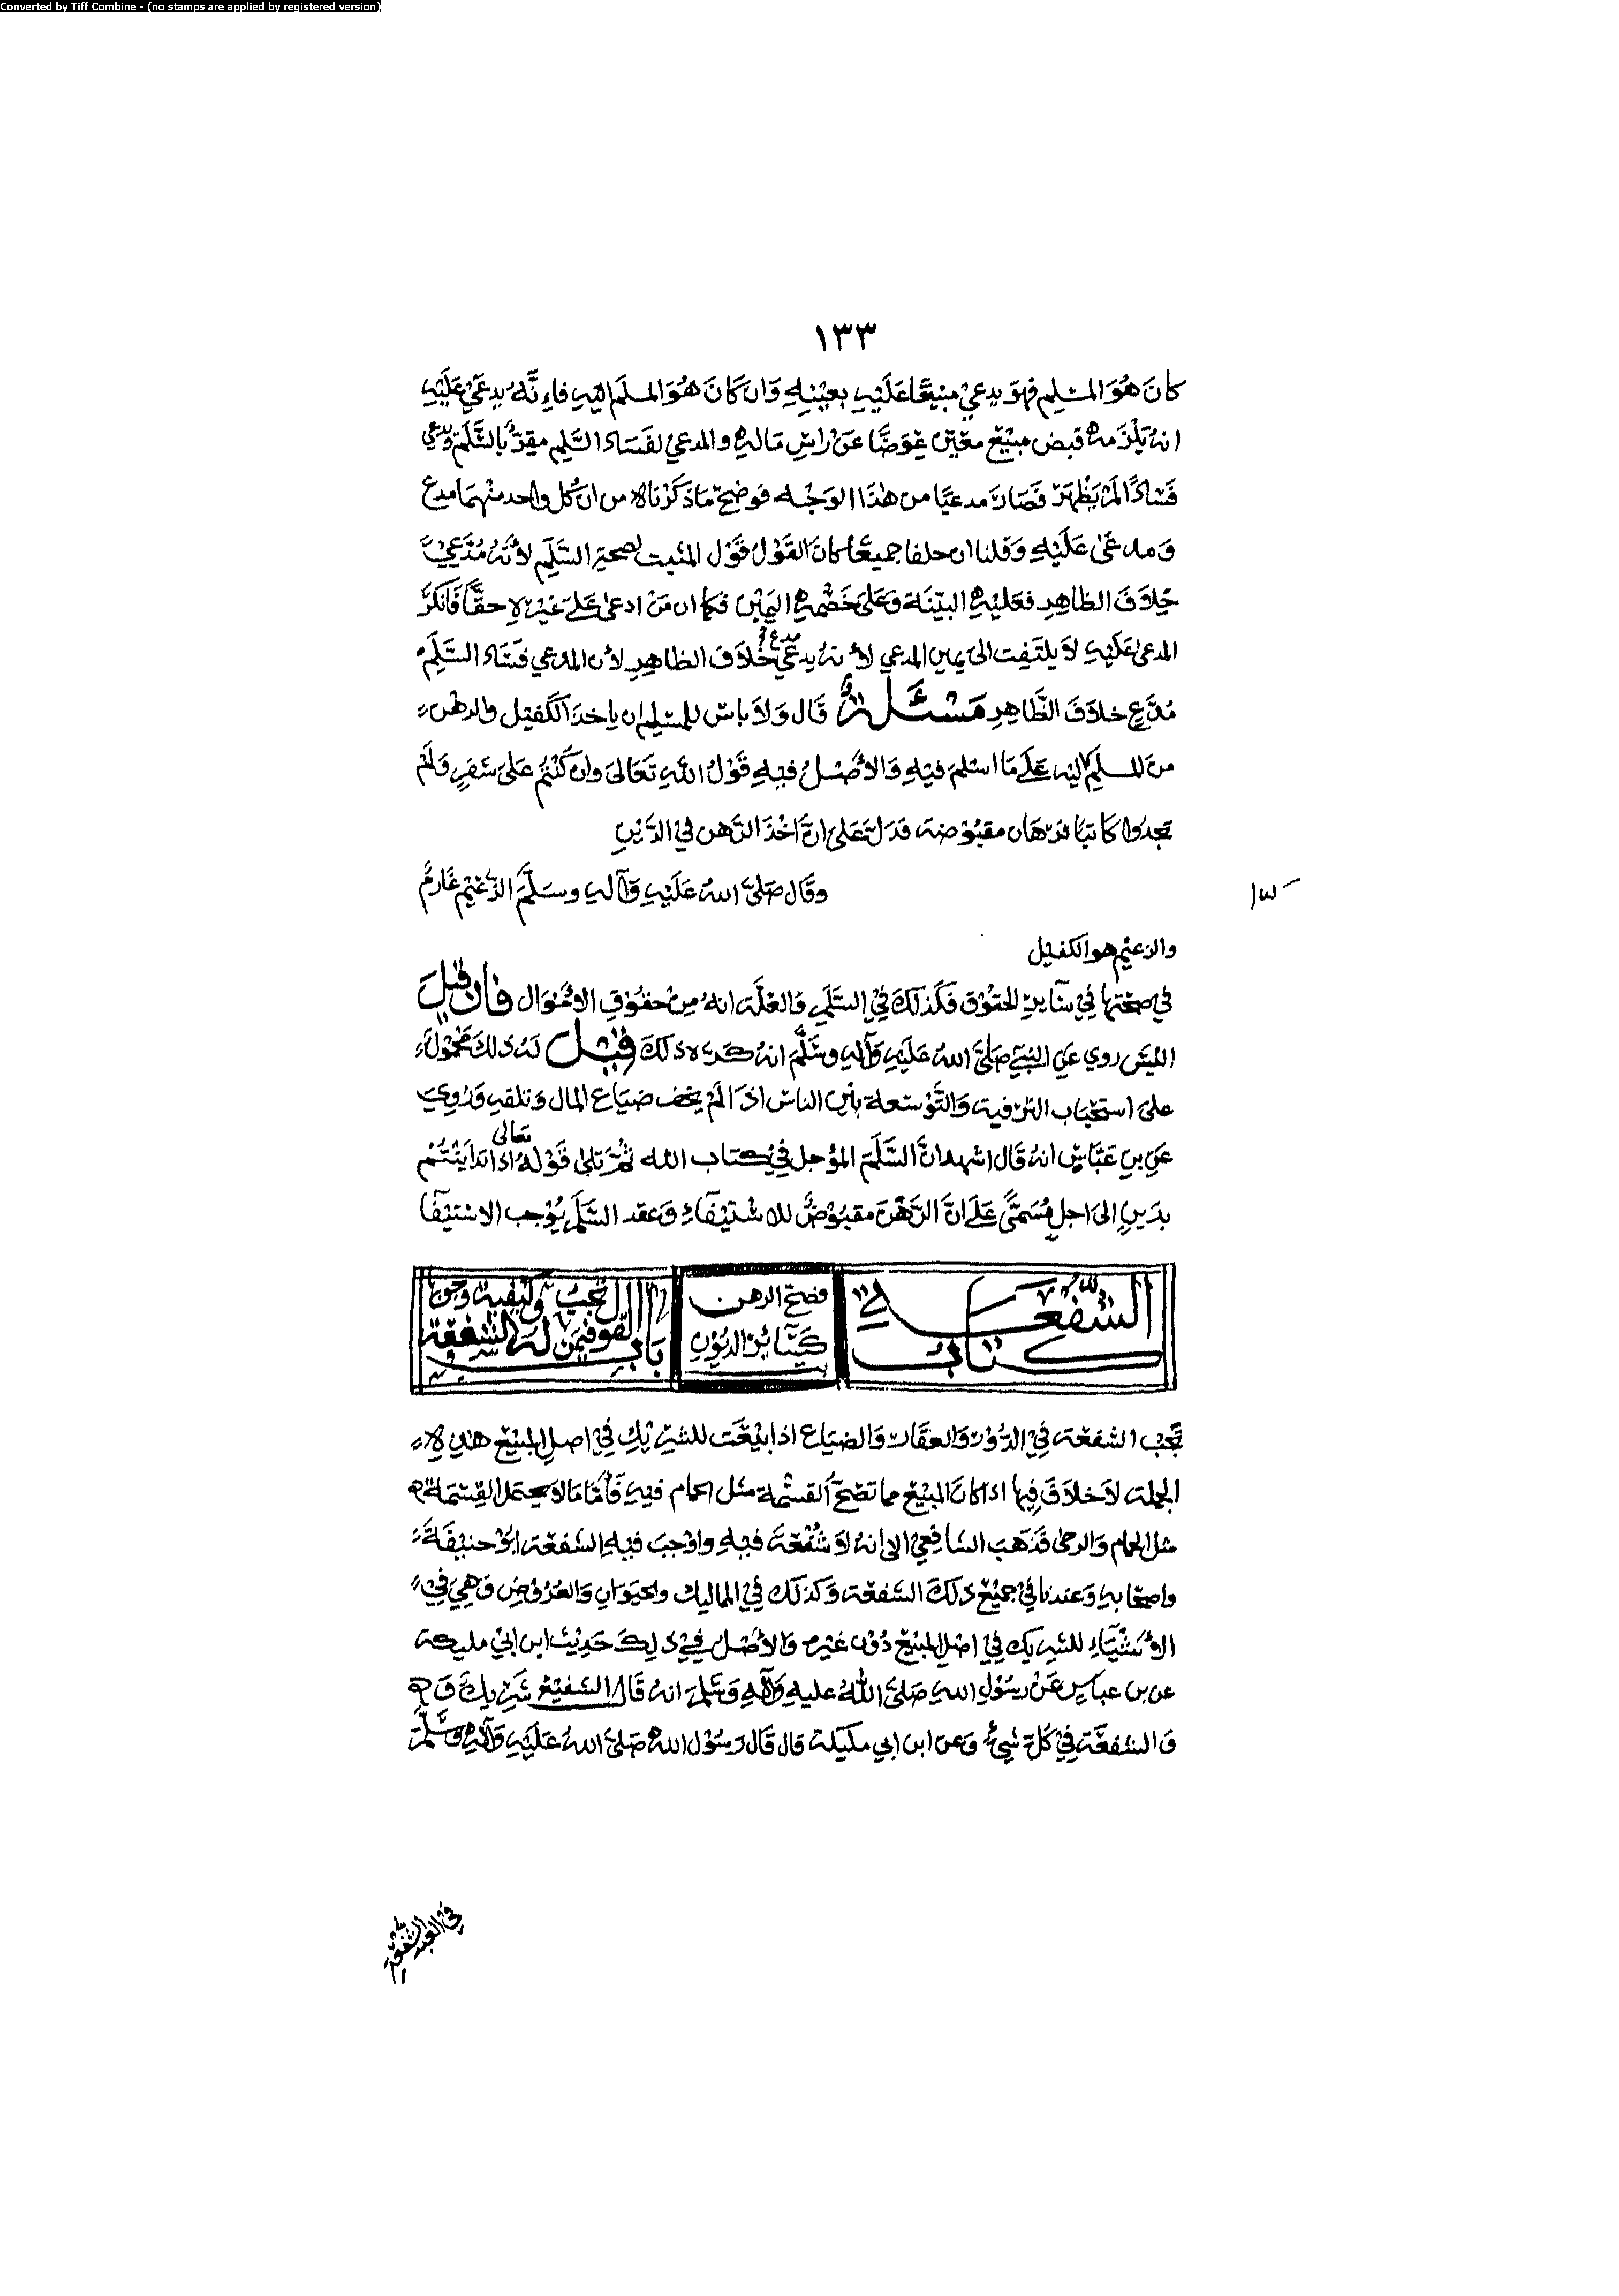 Converted by Tiff Combine - (no stamps are applied by registered version)
١٣٣
كان هُوَ المسلِم فهوَ يدعي مبيعًا عَلَيهِ بعَيْنِهِ وَان كَانَ هُوَ المسلَم اليهِ فاِنَّهُ يدعي عَلَيْهِ
انهُ يَلْزَمهُ قبض مبيْع معَيّن عِوَضًا عَنْ راسِ مَالهِ والمدعي لفَسَاد السَّلِم مقِرٌّ بالسَّلَم ويدعي
فَسَادًا لمْ يَظْهَرْ فَصَارَ مدعيًا من هٰذَا الوَجْه فوَضحَ مَا ذكَرْنَاهُ من ان كُل واحد منْهمَا مدع
وَمدعىٰ عَلَيْهِ وَقلنا ان حلفا جميعًا كانَ القَوْلُ قَوْل المثبت لصحةِ السَّلَمِ لأنَّهُ مُدَّعِيٌ
خِلَافَ الظاهِرِ فعَليْهِ البيّنَة وَعَلىَ خَصْمهِ اليَمِيْن فكما ان مَنْ ادعىٰ عَلىَ غَيْرِهِ حقًّا فَانكرَ
المدعىٰ عَلَيْهِ لَا يلتَفِت الى يمين المدعي لأنهُ يدعي خلَافَ الظاهِرِ لأن المدعي فسَاد السَّلَم
مدع
مُدَّعٍ خلَافَ الظَّاهِرِ مَسْئَلة قَال وَلَا باس للمسْلِم ان ياخذَ الكَفيْل والرهن
منَ المسلَمِ اليه عَلَى مَا اسلمَ فيْهِ وَالأصْلُ فيهِ قَوْلُ اللهِ تَعَالىَ وان كُنْتُمْ عَلىَ سَفَرٍ وَلَمْ
تجدُوا كاتبًا فرهَان مقبُوْضة فَدَلَّ عَلىَ انَّ اخْذَ الرَّهن في الدَّيْنِ
وقَال صَلَّىَ اللهُ عَلَيْهِ وَآلهِ وسَلَّمَ الزَّعيْم غَارمٌ
والزعيْم هو الكفيْل
في صحّتها في سَآئرِ الحقوْق فكَذلكَ في السَّلَمِ وَالعلَّة انهُ مِنْ حقُوْقِ الأمْوَال فان قيْلَ
اليسَ روي عن النبيِّ صَلَّىَ اللهُ عَلَيْهِ وَآلهِ وسَلَّمَ انهُ كَرهَ ذلكَ قيْل لهُ ذلكَ محْمُوْل
علىَ استحباب الترفيه وَالتَّوْسعة بيْن الناس اذا لمْ يخف ضيَاع المال وَتلفهِ وَرُوِيَ
عَن بن عَبَّاسٍ انهُ قَال اشهد انَّ السَّلَمَ المؤجل في كتاب الله ثمَّ تلىٰ قَوْلهُ اذا تدَايَنْتُمْ
تعالى
بدَيْنٍ الى اجلٍ مُسَمًّى عَلىَ انَّ الرَّهْنَ مقبُوْضٌ للاسْتيْفَآءِ وَعقد السَّلَمِ يُوْجب الاسْتيْفَا
فصَحّ الرهن
كَسَآئر الديُوْنِ
كتاب الشفعة
باب القوْل فيمَا تجبُ وكيفية وجوبها وفيمَن لهُ الشفعة
تجبُ الشفعَة في الدُّوْر وَالعقَار وَالضيَاع اذا بيْعَت للشريْك في اصل المبيْعِ هٰذهِ
الجملة لَا خلَافَ فيها اذا كانَ المبيْع مما تصحّ القسْمة فيهِ فَأمَّا مَا لا يحتمل القِسْمة
مثل الحمام
مثل الحمام وَالرحىٰ فَذَهَبَ الشافعي الى انهُ لا شُفْعَة فيْهِ واوْجبَ فيْهِ الشفعَة ابُوْ حنيْفَة
واصحَابه وَعندنا في جميْع ذلكَ الشفعَة وَكذلكَ في المماليك والحيَوَان وَالعُرُوْضِ وَهِيَ في
الأشْيَآءِ للشريك في اصْل المبيْعِ دُوْن غيْره وَالأصْلُ في ذلِكَ حَديْث ابن ابي مليكة
عن بن عباسٍ عَنْ رسُوْلِ اللهِ صَلَّىَ اللهُ عليهِ وَآلهِ وَسَلمَ انهُ قَالَ الشفيْع شريك
وَالشفعَة في كُلّ شَيءٍ وَعن ابن ابي مليكة قال قَال رَسُوْل اللهِ صَلَّىَ اللهُ عَلَيْهِ وَآلهِ وَسَلَّمَ
في العبد الشفعة